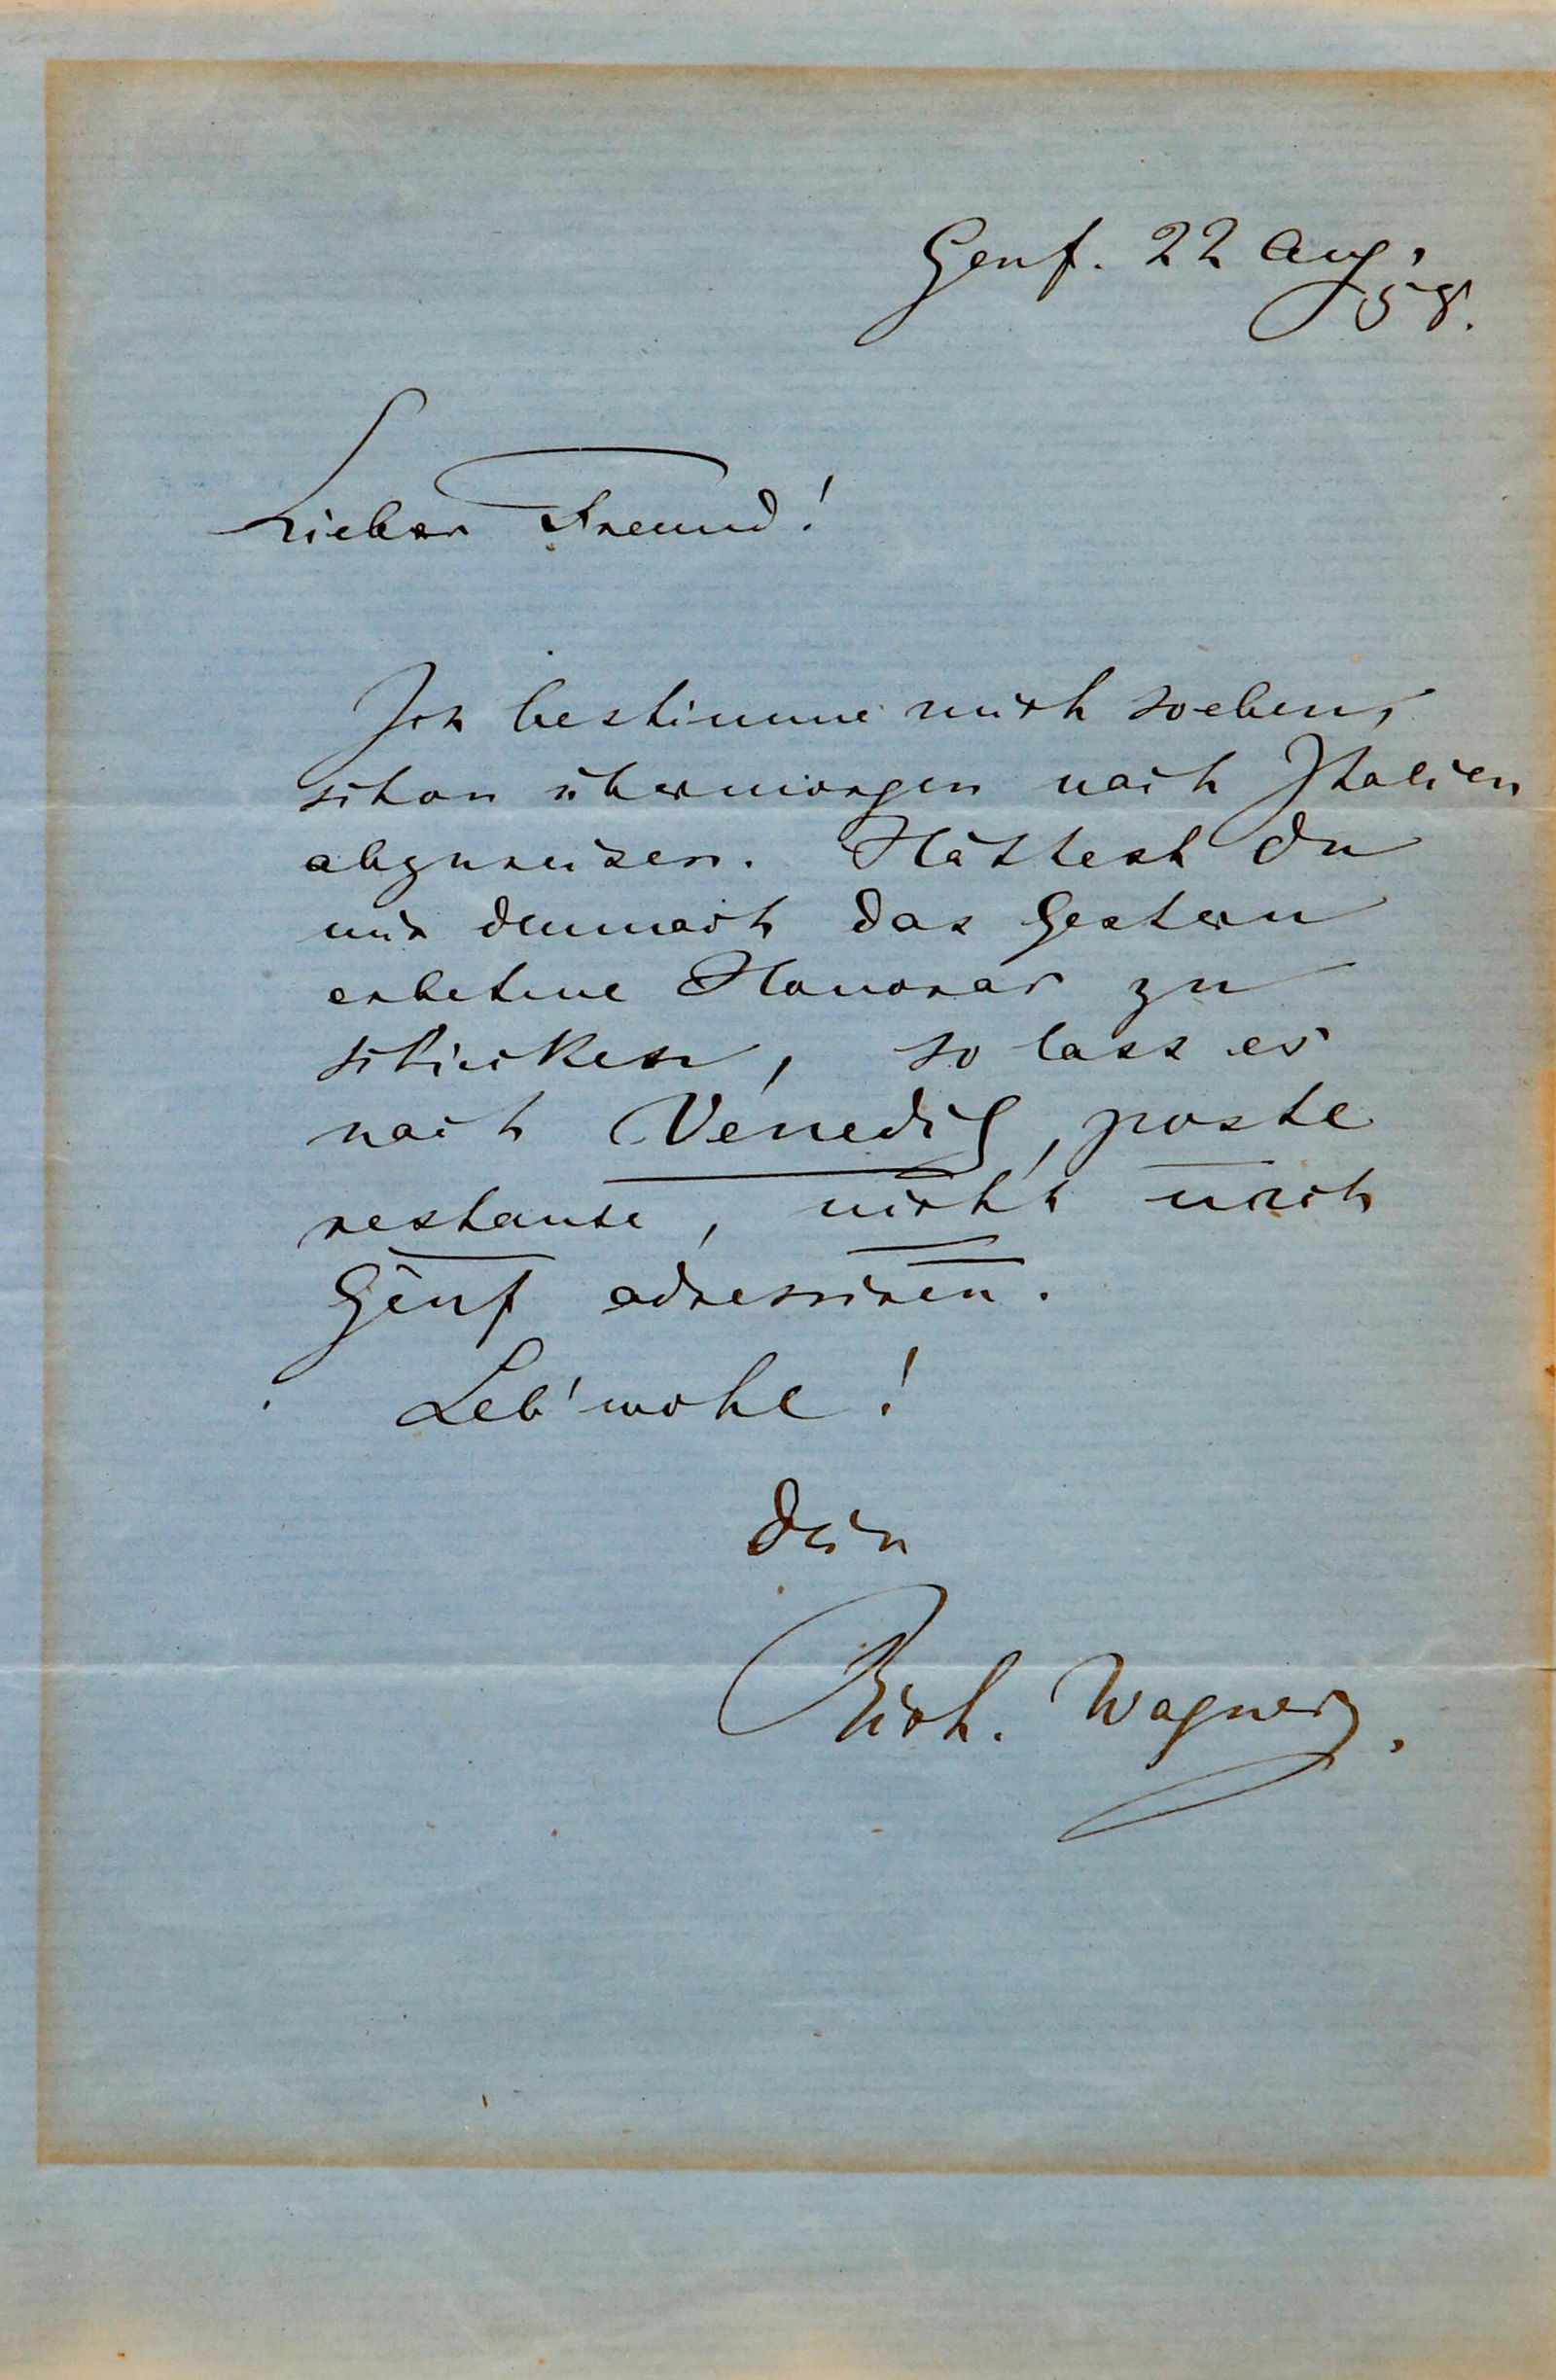 Genf. 22 Aug.
58.
Lieber Freund!
Ich bestimme mich soeben,
schon übermorgen nach Italien
abzureisen. Hättest du
mir demnach das gestern
erbetene Honorar zu
schicken, so lass es
nach Venedig, poste
restante, nicht nach
Genf adressiren.
Leb' wohl!
Dein
Rich. Wagner.